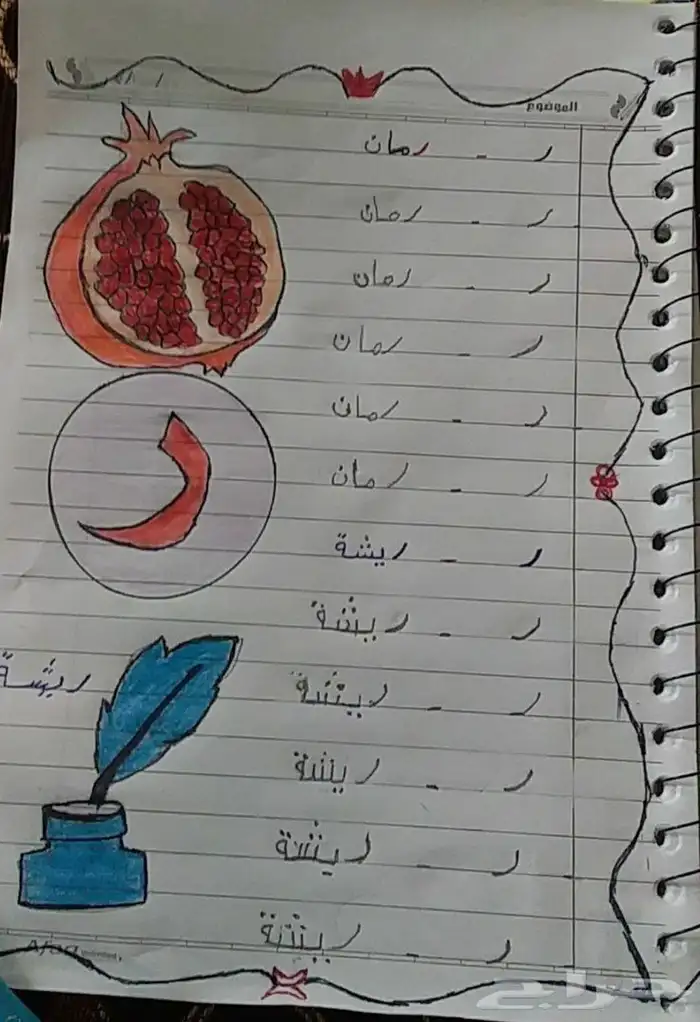 الموضوع
ر - رمان
ر - رمان
ر - رمان
ر - رمان
ر - رمان
ر - رمان
ر
ر - ريشة
ر - ريشة
ريشة
ر - ريشة
ر - ريشة
ر - ريشة
ر - ريشة
حراج